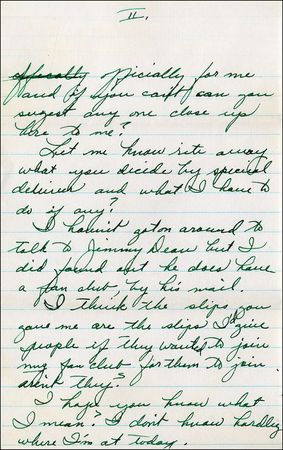 II.
officially for me
and if you can't can you
sugest any one close up
here to me?
Let me know rite away
what you decide by special
deliver and what I have to
do if any?
I havin't goton around to
talk to Jimmy Dean but I
did found out he does have
a fan club, by his mail.
I think the slips you
gave me are the slips I'd give
people if they wanted to join
my fan club for them to join
arent they?
I hope you know what
I mean? I don't know hardley
where I'm at today.